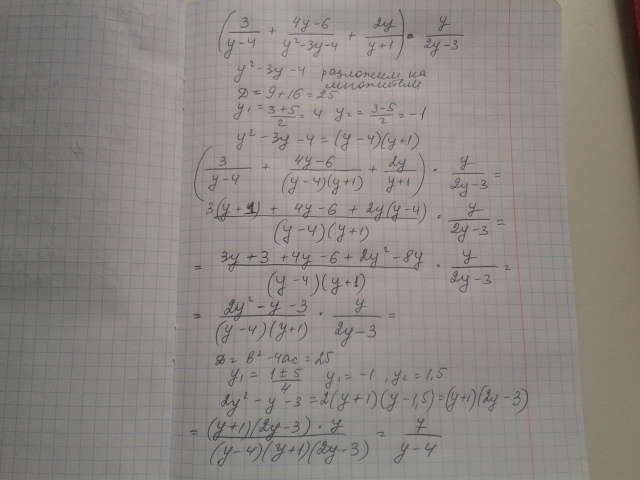 (3/(y-4) + (4y-6)/(y²-3y-4) + 2y/(y+1)) · y/(2y-3)
y²-3y-4 разложим на
множители
D = 9+16 = 25
y₁ = (3+5)/2 = 4 y₂ = (3-5)/2 = -1
y² - 3y - 4 = (y-4)(y+1)
(3/(y-4) + (4y-6)/((y-4)(y+1)) + 2y/(y+1)) · y/(2y-3) =
(3(y+1) + 4y-6 + 2y(y-4))/((y-4)(y+1)) · y/(2y-3) =
= (3y+3+4y-6+2y²-8y)/((y-4)(y+1)) · y/(2y-3) =
= (2y²-y-3)/((y-4)(y+1)) · y/(2y-3) =
D = b²-4ac = 25
y₁ = (1±5)/4 y₁ = -1, y₂ = 1,5
2y²-y-3 = 2(y+1)(y-1,5) = (y+1)(2y-3)
= ((y+1)(2y-3)·y)/((y-4)(y+1)(2y-3)) = y/(y-4)